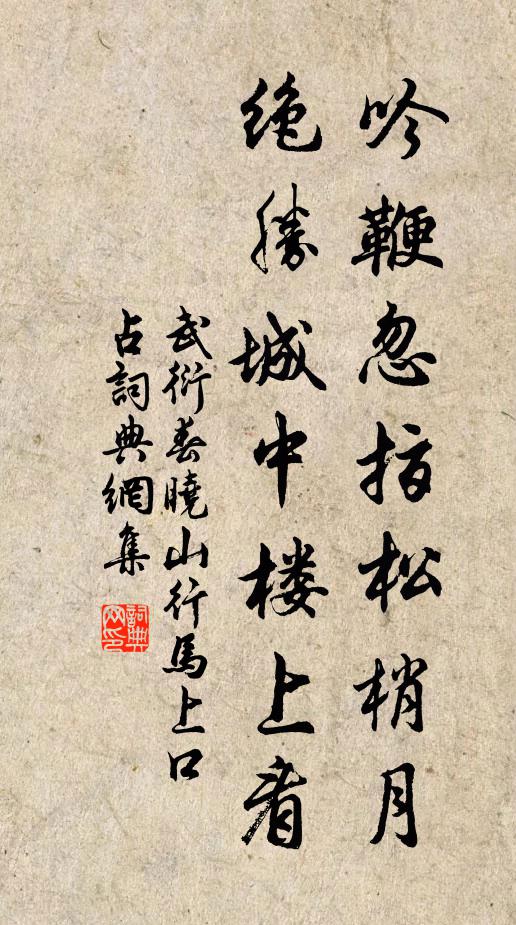 吟鞭忽指松梢月
绝胜城中楼上看
武衍春曉山行馬上口
占詞典網集
詞典網印